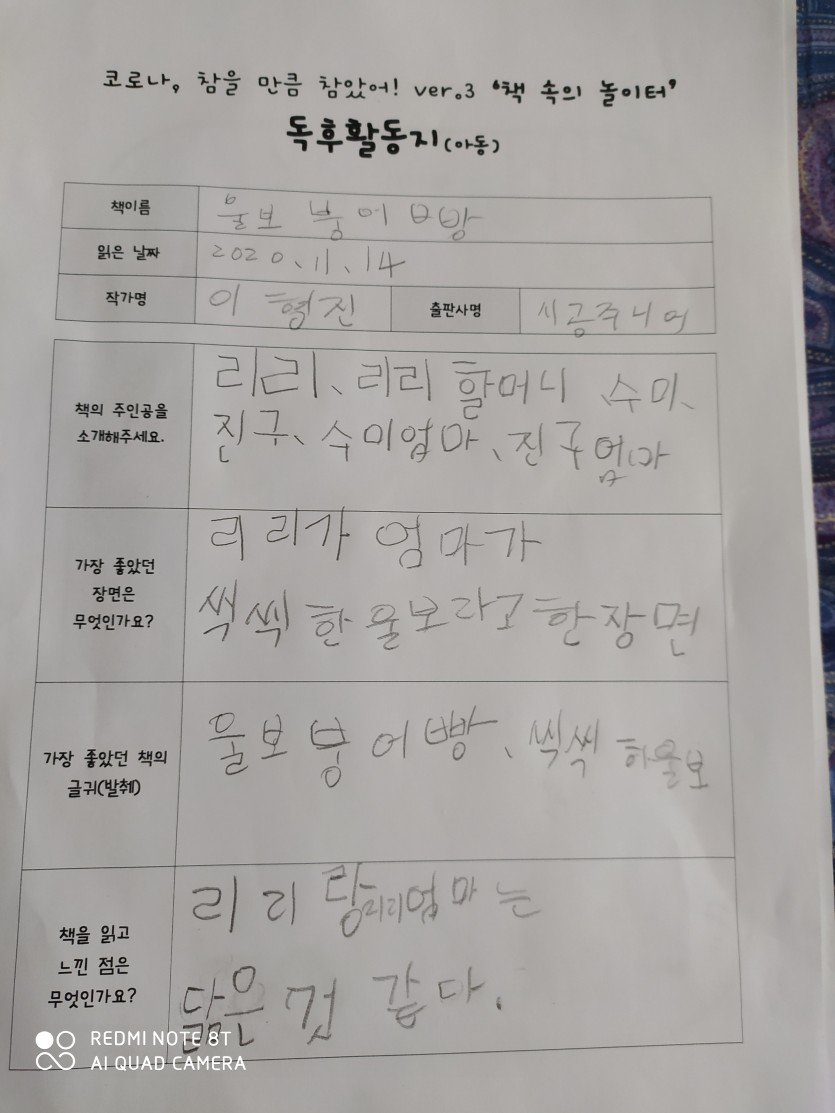 코로나, 참을 만큼 참았어! ver.3 '책 속의 놀이터'
독후활동지(아동)
책이름 울보 붕어빵
읽은 날짜 2020.11.14
작가명 이형진 출판사명 시공주니어
책의 주인공을
소개해주세요.
리리、리리 할머니、수미、
진구、수미엄마、진구엄마
가장 좋았던
장면은
무엇인가요?
리리가 엄마가
씩씩한 울보라고 한 장면
가장 좋았던 책의
글귀(발췌)
울보 붕어빵、씩씩 하울보
책을 읽고
느낀 점은
무엇인가요?
리리랑 리리엄마는
닮은 것 같다.
REDMI NOTE 8T
AI QUAD CAMERA